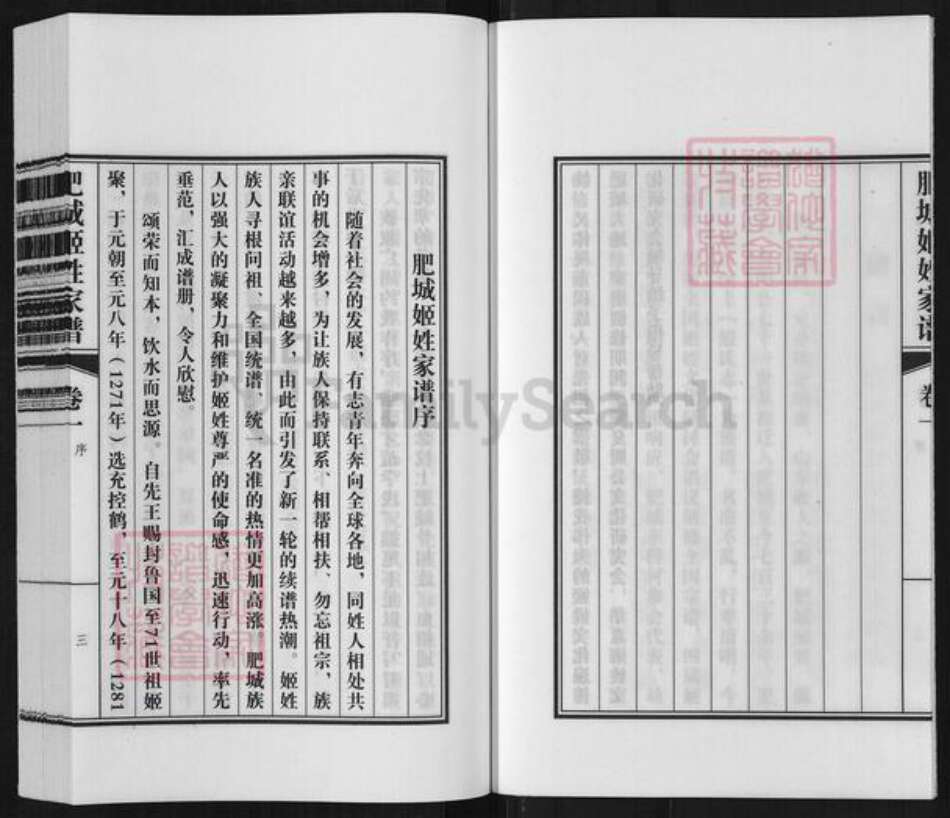 肥城姬姓家谱序
随着社会的发展，有志青年奔向全球各地，同姓人相处共
事的机会增多，为让族人保持联系、相帮相扶、勿忘祖宗，族
亲联谊活动越来越多，由此而引发了新一轮的续谱热潮。姬姓
族人寻根问祖、全国统谱、统一名准的热情更加高涨。肥城族
人以强大的凝聚力和维护姬姓尊严的使命感，迅速行动，率先
垂范，汇成谱册，令人欣慰。
颂荣而知本，饮水而思源。自先王赐封鲁国至71世祖姬
聚，于元朝至元八年（1271年）选充控鹤，至元十八年（1281
肥城姬姓家谱
卷一
序
三
肥城姬姓家谱
卷一
FamilySearch